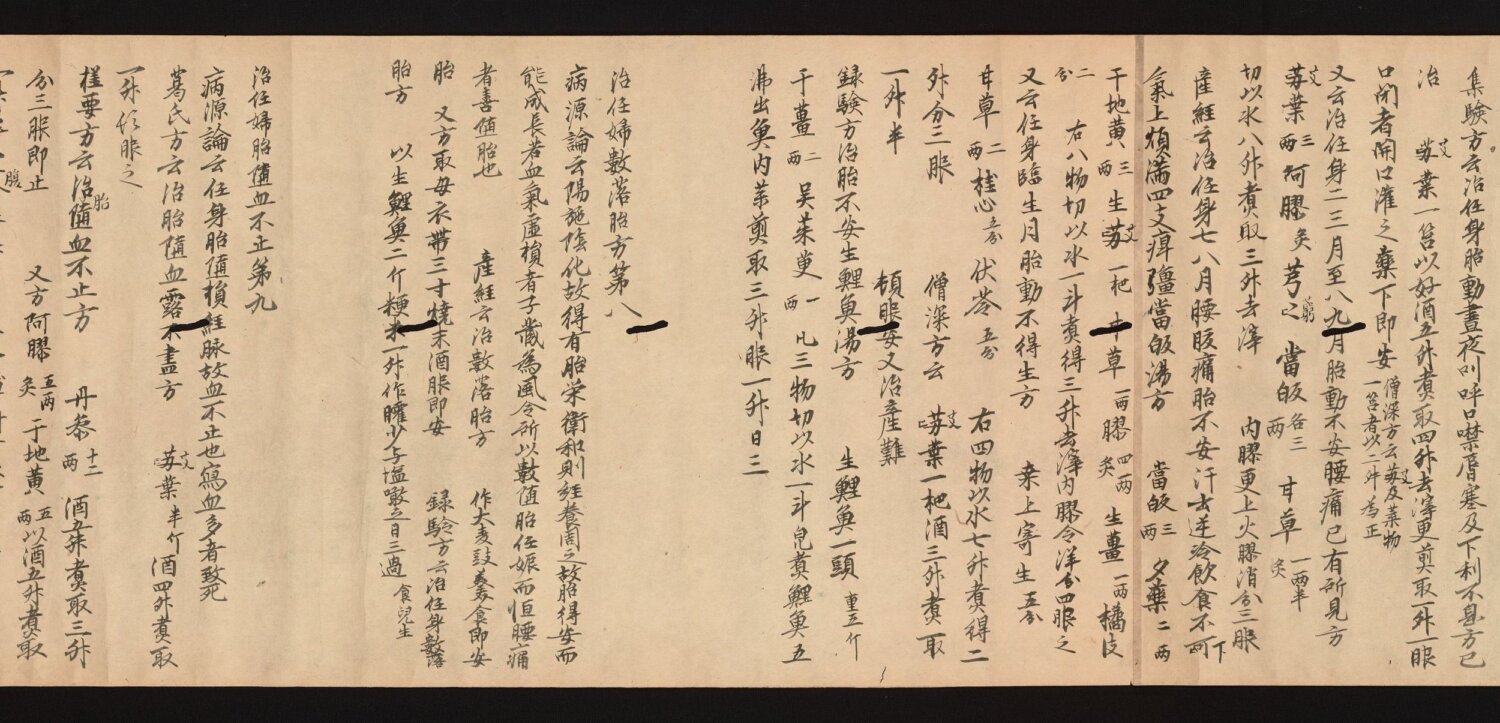 集驗方云治任身胎動晝夜叫呼口噤脣塞及下利不息方已
治 艾葉一筥以好酒五升煮取四升去滓更煎取一升一服
口閉者開口灌之藥下即安 僧深方云艾及葉物一筥者以二升為正
又云治任身二三月至八九月胎動不安腰痛已有所見方
艾葉三兩 阿膠炙 芎之 當皈各三兩 甘草一兩半炙
切以水八升煮取三升去滓 內膠更上火膠消分三服
產經云治任身七八月腰腹痛胎不安汗去逆冷飲食不可下
氣上煩滿四支痺彊當皈湯方 當皈三兩 夕藥二兩
干地黃三兩 生艾一杷 甘草一兩 膠四兩炙 生薑一兩 橘皮
二分 右八物切以水一斗煮得三升去滓內膠令洋分四服之
又云任身臨生月胎動不得生方 桒上寄生五分
甘草二兩 桂心五分 伏苓五分 右四物以水七升煮得二
升分三服 僧深方云 艾葉一杷酒三升煮取
一升半 頓服安又治產難
録驗方治胎不安生鯉魚湯方 生鯉魚一頭重五斤
干薑二兩 吳茱萸一兩 凡三物切以水一斗皃煮鯉魚五
沸出魚內藥煎取三升服一升日三
治任婦數落胎方第八
病源論云陽施陰化故得有胎榮衛和則經養周〻故胎得安而
能成長若血氣虛損者子藏為風令所以數值胎任娠而恒腰痛
者善值胎也 產經云治數落胎方 作大麦豉羹食即安
胎 又方取母衣帶三寸燒末酒服即安 録驗方云治任身數落
胎方 以生鯉魚二斤粳米一升作臛少与塩噉之日三過食兒生
治任婦胎墮血不止第九
病源論云任身胎墮損經脉故血不止也寫血多者致死
葛氏方云治胎墮血露不盡方 艾葉半斤 酒四升煮取
一升頓服之
極要方云治胎墮血不止方 丹叅十二兩 酒五升煮取三升
分三服即止 又方阿膠五兩炙 干地黃五兩 以酒五升煮取